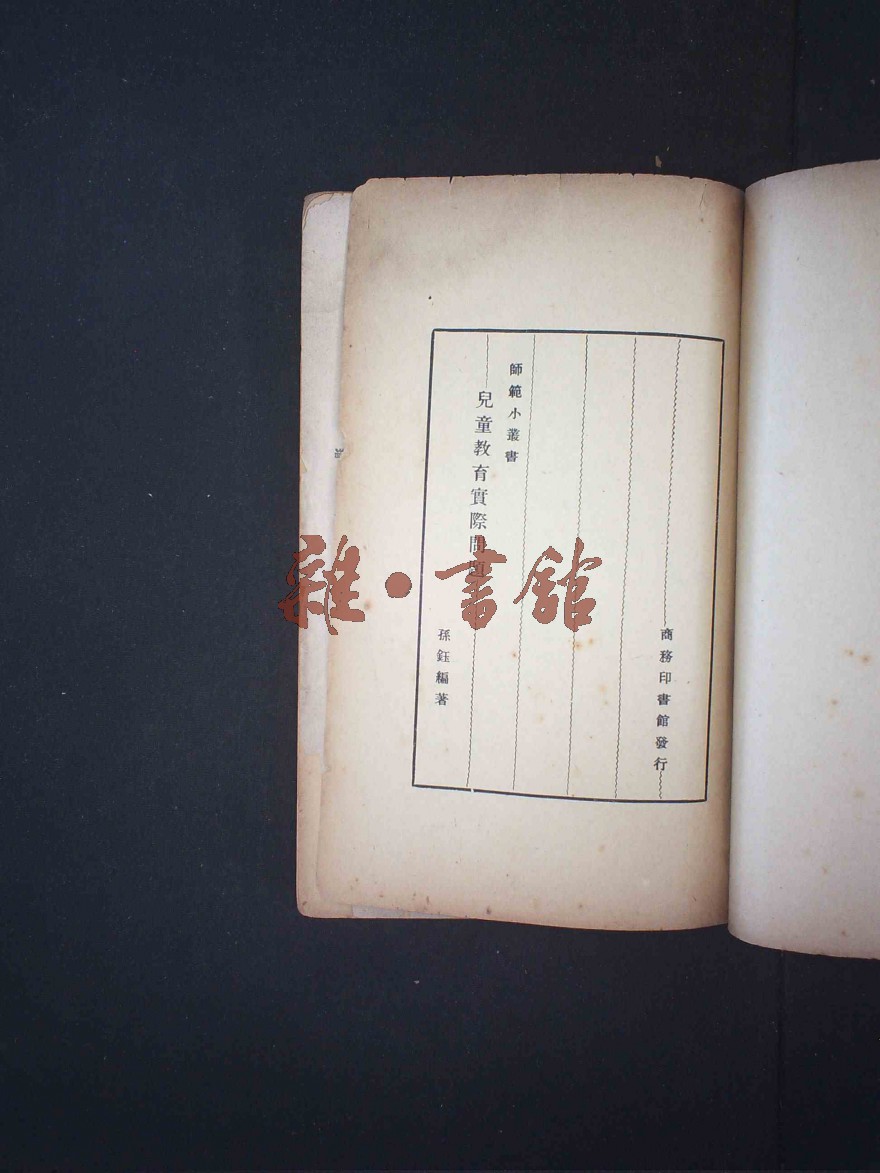 師範小叢書
兒童教育實際問題
孫鈺編著
商務印書館發行
雜·書館